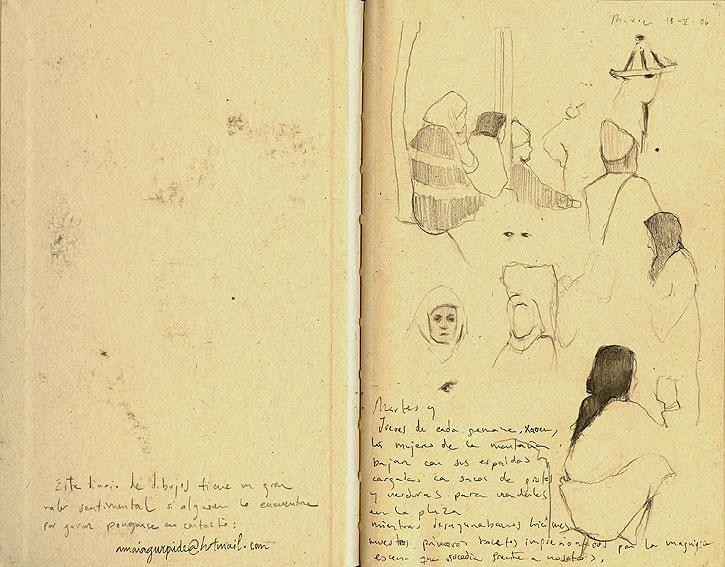 Este diario de dibujos tiene un gran
valor sentimental si alguien lo encuentra
por favor pongase en contacto:
amaiagurpide@hotmail.com
18-V-06
Martes y
Jueves de cada semana, Xaouen,
las mujeres de la montaña
bajan con sus espaldas
cargadas con sacos de
y verduras para venderlas
en la plaza
mientras desayunabamos hicimos
nuestros primeros bocetos impresionados por la magnifica
escena que sucedia frente a nosotros.